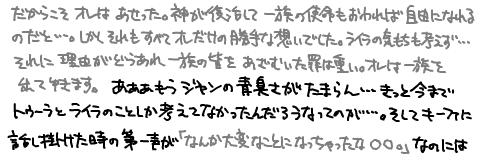 だからこそ オレは あせった。神が復活して 一族の使命もおわれば 自由になれる
のだと…。しかしそれもすべてオレだけの勝手な想いでした。ライラの気持ちも考えず…
それに 理由がどうあれ 一族の皆を あざむいた罪は重い。オレは一族を
出て行きます。 あああもう ジャンの青臭さがたまらん…きっと今まで
トゥーラとライラのことしか考えてなかったんだろうなってのが…。そしてキーファに
話し掛けた時の第一声が「なんか大変なことになっちゃったな○○。」なのには